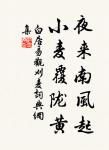 夜来南風起
小麦覆陇黄
白居易觀刈麦詞典網
集